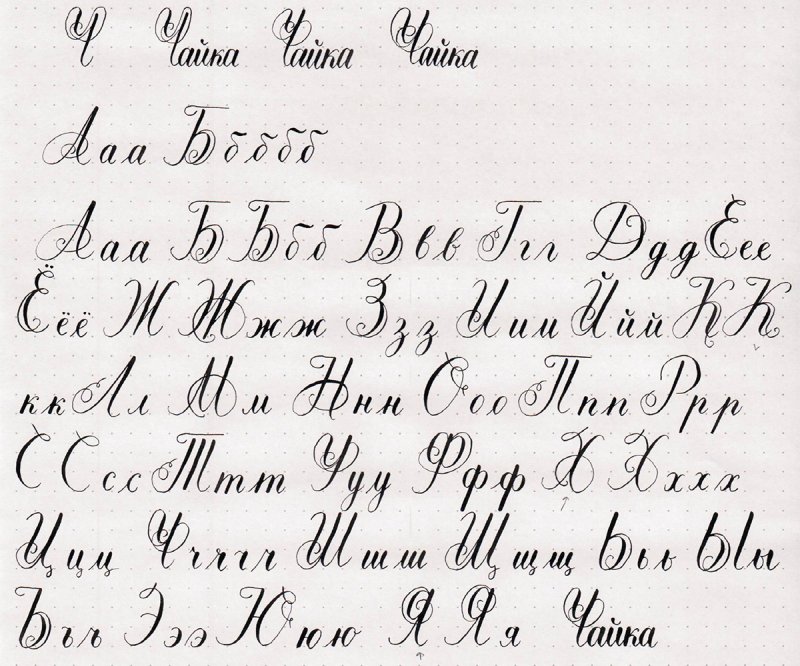 Ч Чайка Чайка Чайка
Ааа Ббббб
Ааа Б Ббб Ввв Ггг Ддд Ёее
Ёёё Ж Жжж Ззз Иии Ййй К К
кк Лл Мм Ннн Ооо Ппп Ррр
С Ссс Ттт Ууу Ффф Х Хххх
Ццц Ччччч Шшш Щщщ Ььь Ыы
Ъъъ ЭээЮюю Я Яя Чайка